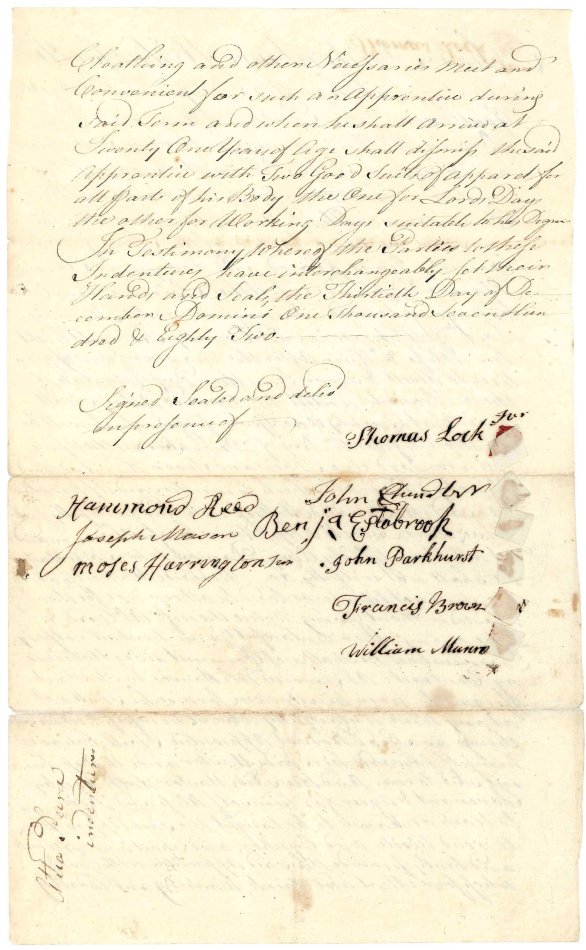 Cloathing and other Necessaries meet and
Convenient for such an Apprentice during
Said Term and when he shall Arrive at
Twenty One Years of Age shall dismiss the said
Apprentice with Two Good Suits of apparel for
all Parts of his Body the One for Lords Days
the other for Working Days suitable to his Degree
In Testimony Whereof the Parties to these
Indentures have interchangeably set their
Hands and Seals the Thirtieth Day of De-
cember Domini One Thousand Seven Hun
dred & Eighty Two
Signed Sealed and deliv
in presence of
Thomas Lock Jur
Hammond Reed
Joseph Mason
Moses Harrington Jun
John Chandler
Benja Estabrook
John Parkhurst
Francis Brown
William Munro
indenture